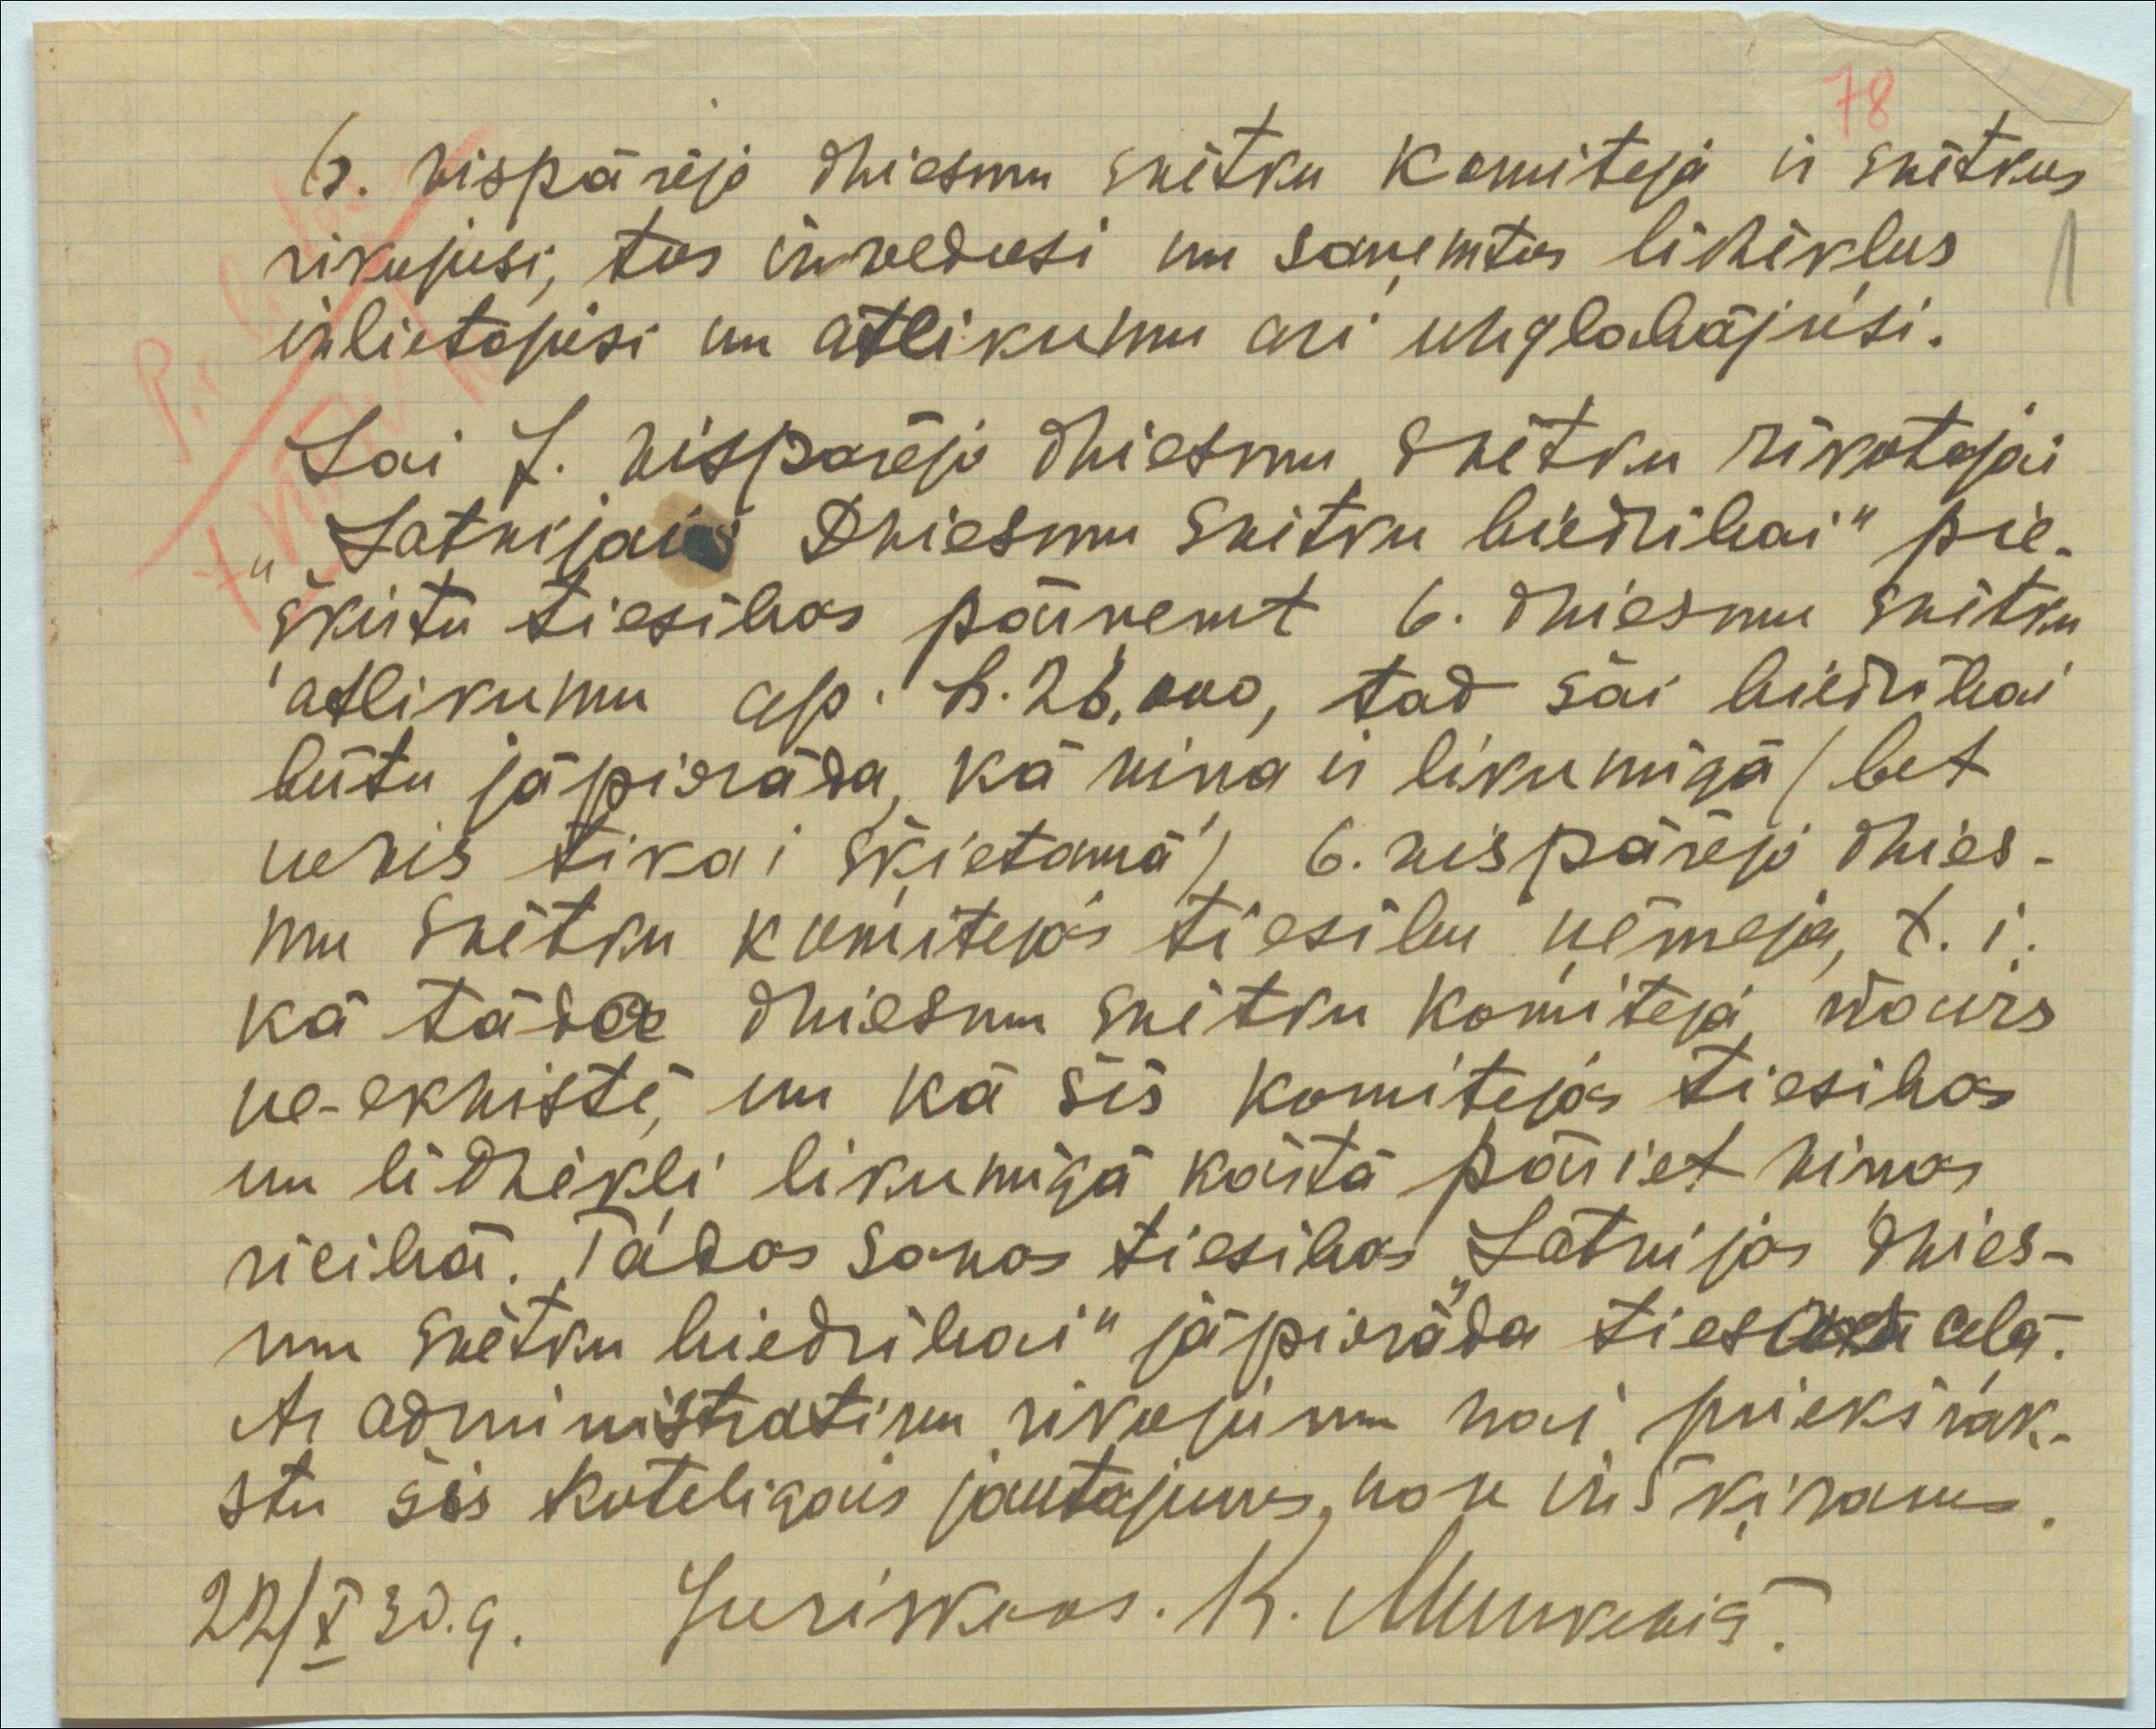 78
6. vispārējo dziesmu svētku komiteja ir svētkus
rīkojusi, tos izvedusi un saņemtos līdzēkļus
izlietojusi un atlikumu arī uzglabājusi.
1
Lai 7. vispārējo dziesmu svētku rīkotajai
„Latvijas Dziesmu svētku biedrībai“ pie-
šķirtu tiesības pārņemt 6. dziesmu svētku
atlikumu ap. Ls. 28,000, tad šai biedrībai
būtu jāpierāda, ka viņa ir likumīgā (bet
nevis tikai šķietamā) 6. vispārējo dzies-
mu svētku komitejas tiesību ņēmēja, t. i.
ka tāda dziesmu svētku komiteja vairs
ne-ekzistē, un ka šīs komitejas tiesības
un līdzēkļi likumīgā kārtā pāriet viņas
rīcībā. Tādas savas tiesības „Latvijas dzies-
mu svētku biedrībai“ jāpierāda tiesas ceļā.
Ar administratīvu rīkojumu vai priekšrak-
stu šis kutelīgais jautājums nav izšķirams.
22/X 30.g. Juriskons. K.